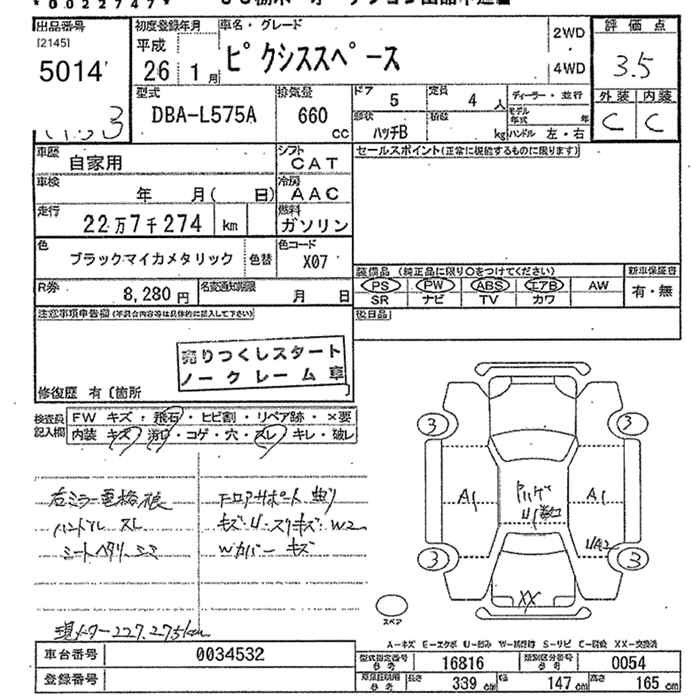 *0022747*
出品番号 初度登録年月 車名・グレード 2WD 評価点
[2145] 平成
5014 26 1月 ピクシススペース 4WD 3.5
型式 排気量 ドア 5 定員 4人 ディーラー・並行 外装 内装
DBA-L575A 660 cc 形状 ハッチB 積載 kg モデル年式 年 ハンドル 左・右 C C
車歴 自家用 シフト CAT セールスポイント(正常に機能するものに限ります)
車検 年 月( 日) 冷房 AAC
走行 22万7千274 km 燃料 ガソリン
色 ブラックマイカメタリック 色替 色コード X07
装備品 (純正品に限り○をつけてください) 新車保証書
PS PW ABS エアB AW 有・無
SR ナビ TV カワ
R券 8,280円 名変通知期限 月 日
注意事項申告欄 (不具合内容等は具体的に記入して下さい) 後日品
売りつくしスタート
ノークレーム車
修復歴 有〔箇所 〕
検査員記入欄 FW キズ・飛石・ヒビ割・リペア跡・×要
内装 キズ・汚レ・コゲ・穴・スレ・キレ・破レ
右ミラー
ハンドル スレ
シートヘタリ
曲リ
キズ・U・スリキズ W2
Wカバー キズ
現メーター227,275km
3 3
A1 A1
U1
3 3
XX
スペア
A-キズ E-エクボ U-凹み W-補修跡 S-サビ C-腐食 XX-交換済
車台番号 0034532 型式指定番号 参考 16816 類別区分番号 参考 0054
登録番号 参考 長さ 339 cm 幅 147 cm 高さ 165 cm